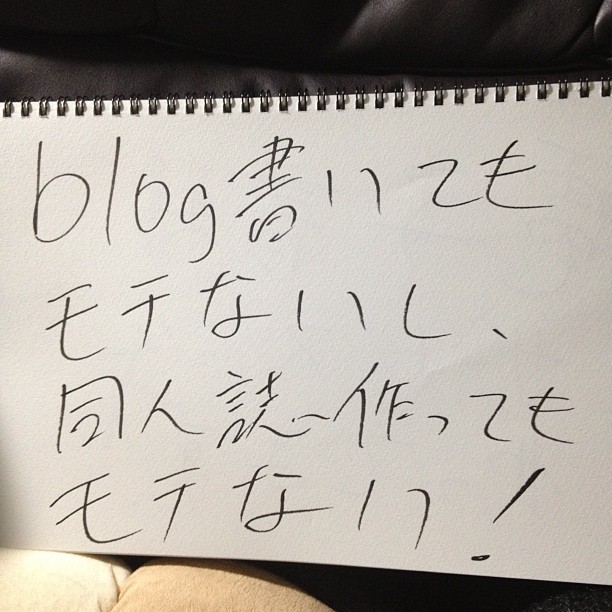 blog書いても
モテないし、
同人誌作っても
モテない!